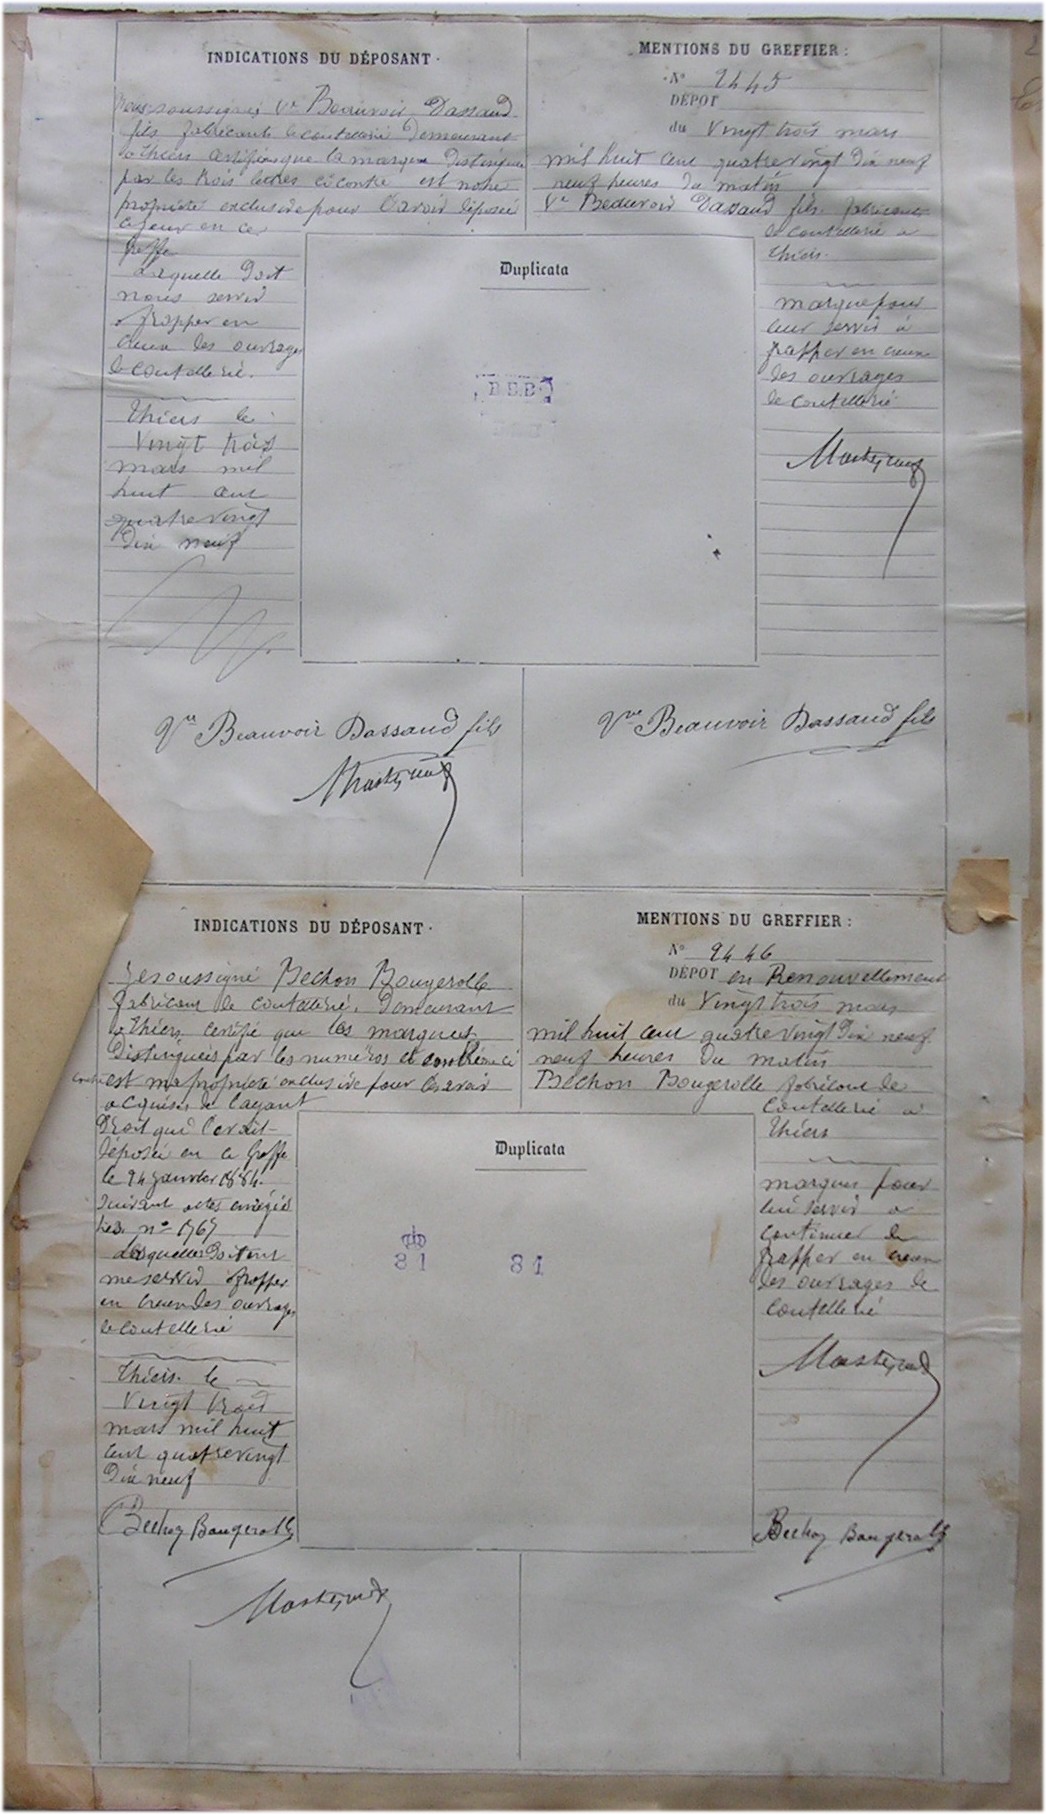 INDICATIONS DU DÉPOSANT.
Nous soussignés Ve Beauvoir Dassaud
fils fabricants de coutellerie demeurant
à Thiers certifions que la marque distinguée
par les trois lettres ci contre est notre
propriété exclusive pour l'avoir déposée
ce jour en ce
Greffe
Laquelle doit
nous servir
à frapper en
creux les ouvrages
de coutellerie.
Thiers le
Vingt trois
mars mil
huit cent
quatre vingt
dix neuf
MENTIONS DU GREFFIER:
N° 2445
DÉPOT
du Vingt trois mars
mil huit cent quatre vingt dix neuf
neuf heures du matin
Ve Beauvoir Dassaud fils fabricants
de coutellerie à
Thiers.
marque pour
leur servir à
frapper en creux
les ouvrages
de coutellerie
Duplicata
B.B.B.
Vve Beauvoir Dassaud fils
Vve Beauvoir Dassaud fils
INDICATIONS DU DÉPOSANT.
Je soussigné Bechon Bougerolle
fabricant de coutellerie, demeurant
à Thiers certifie que les marques
distinguées par les numéros ci contre
est ma propriété exclusive pour les avoir
acquises de l'ayant
Droit qui l'avait
déposée en ce Greffe
le 24 janvier 1884.
suivant actes enregis
trés n° 1767
Lesquelles doivent
me servir frapper
en creux les ouvrages
de coutellerie
Thiers. le
Vingt trois
mars mil huit
cent quatre vingt
dix neuf
Bechon Bougerolle
MENTIONS DU GREFFIER:
N° 2446
DÉPOT en Renouvellement
du Vingt trois mars
mil huit cent quatre vingt dix neuf
neuf heures du matin
Bechon Bougerolle fabricant de
coutellerie à
Thiers
marques pour
lui servir à
continuer de
frapper en creux
les ouvrages de
coutellerie
Bechon Bougerolle
Duplicata
31 31